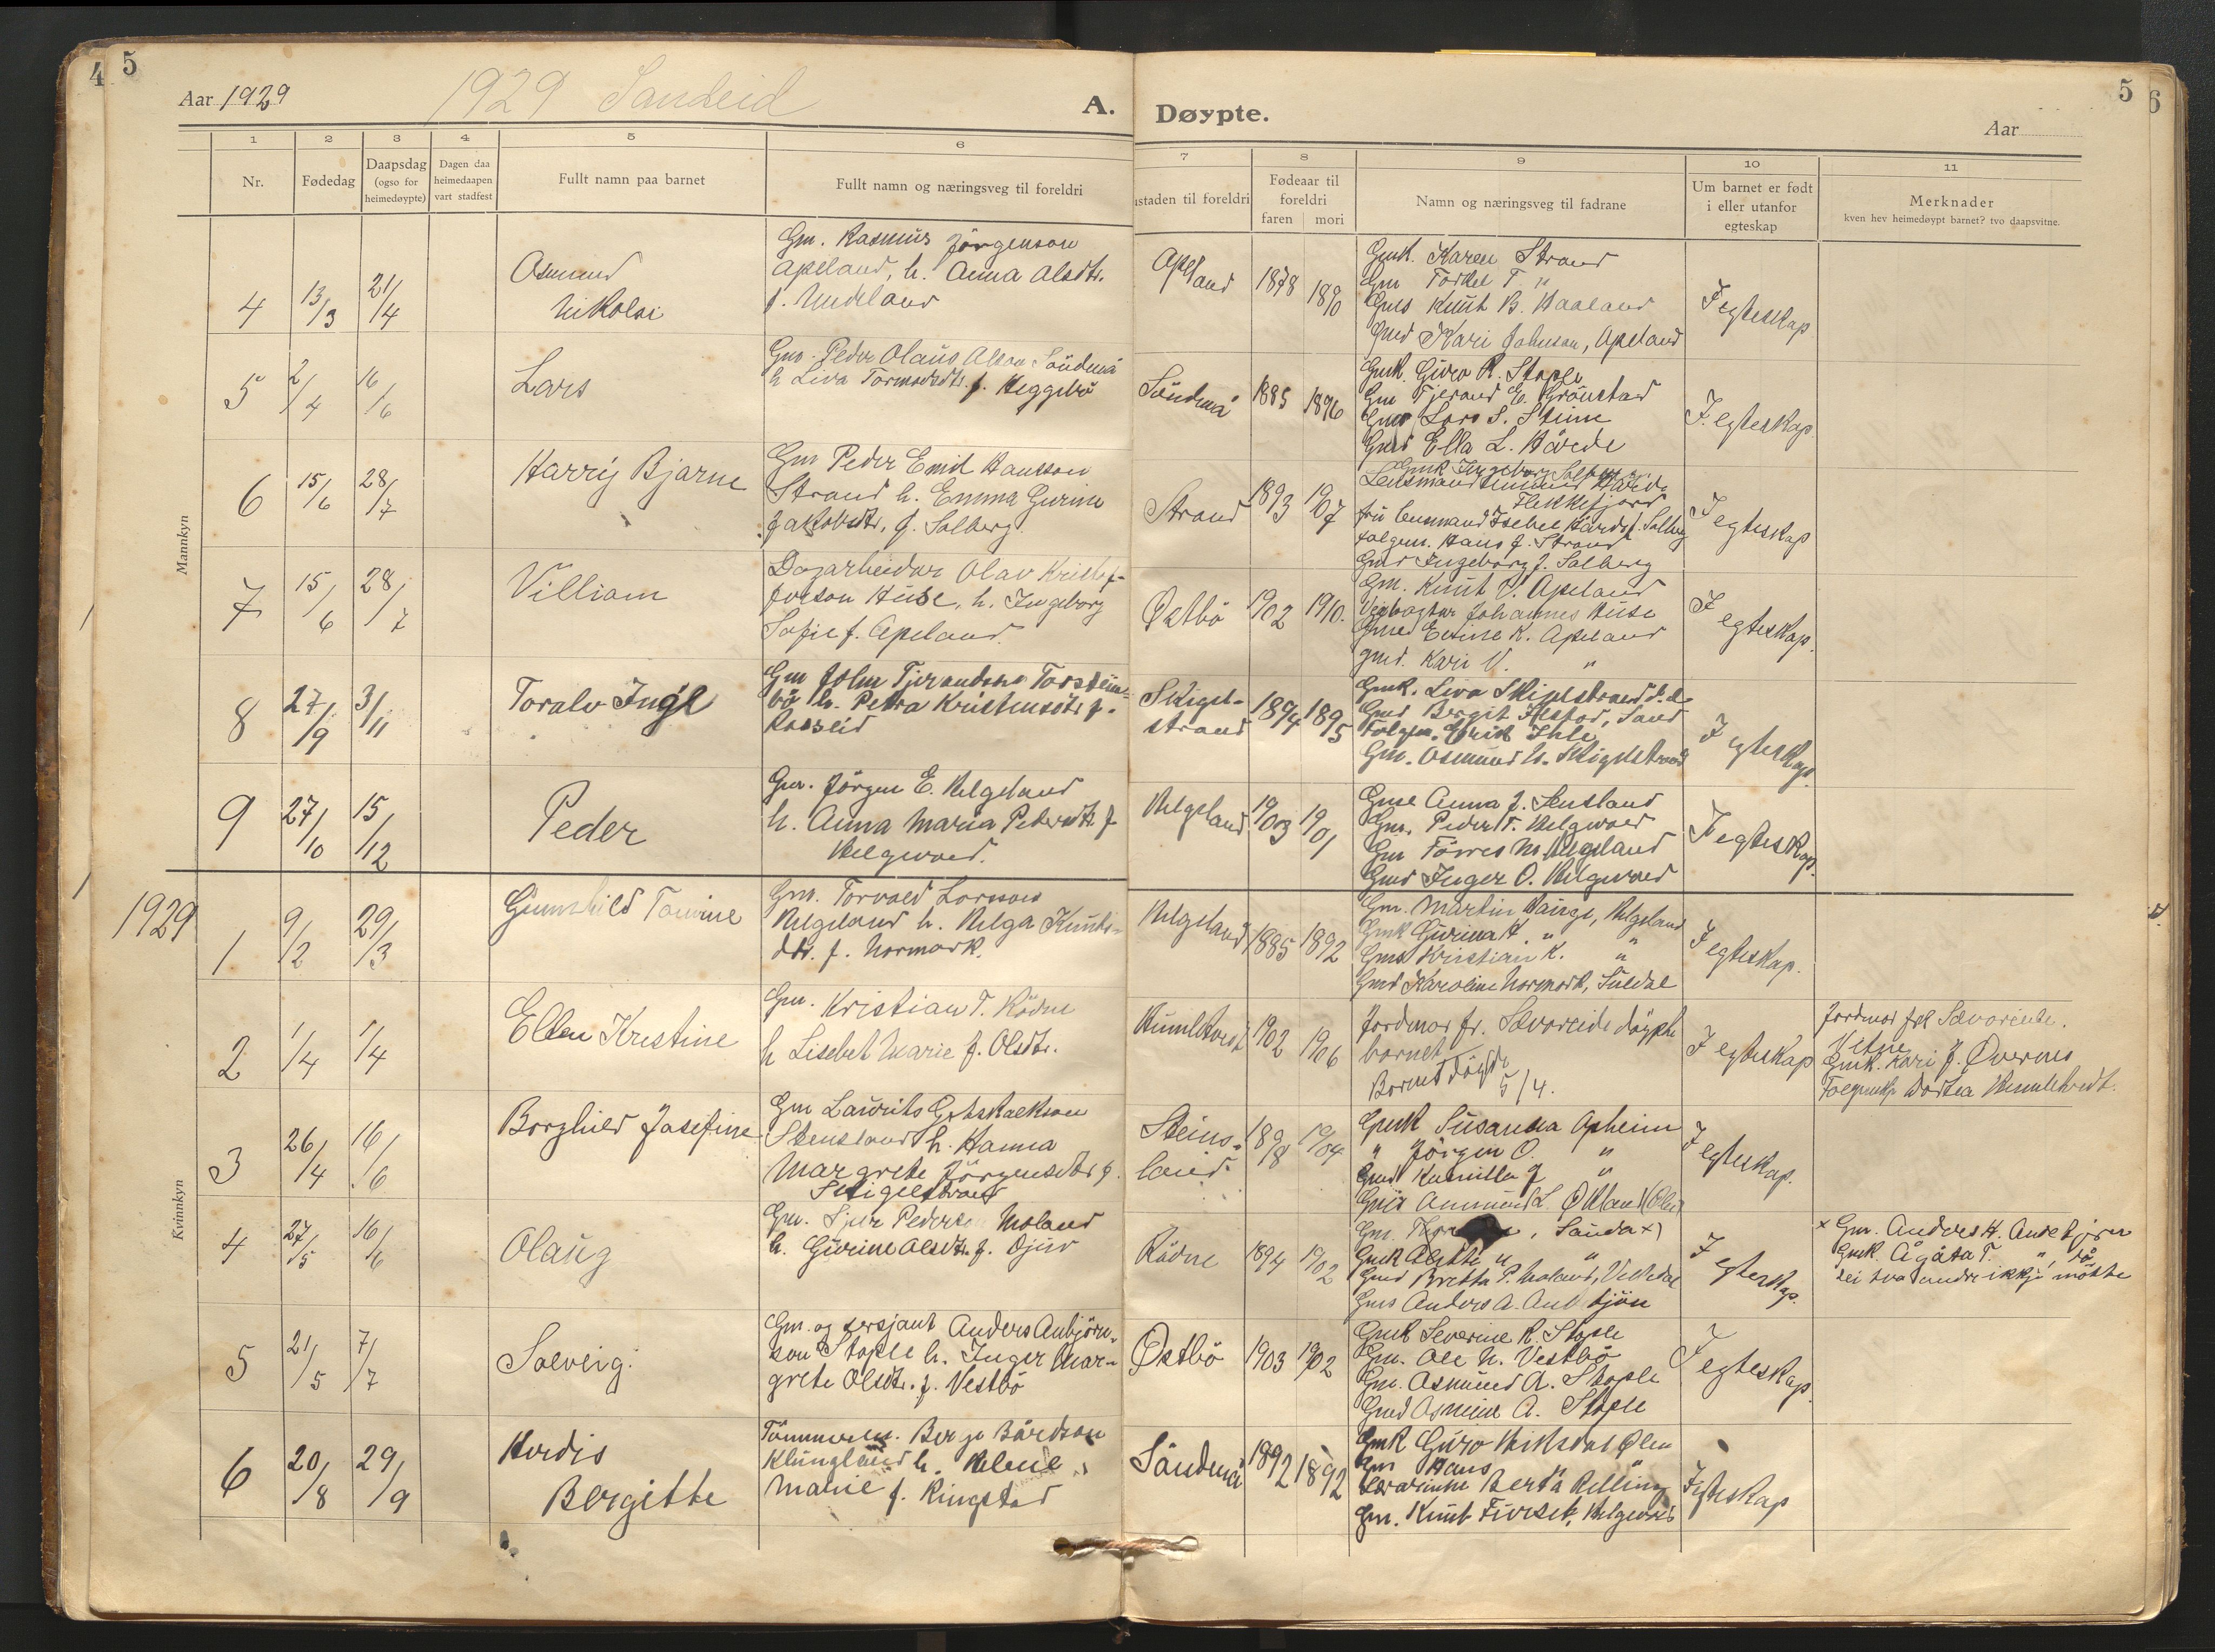 4 5
Aar 1929
1929 Sandeid
A.
Døypte.
5 6
Aar
1
2
3
4
5
6
7
8
9
10
11
Nr.
Fødedag
Daapsdag
(ogso for
heimedøypte)
Dagen daa
heimedaapen
vart stadfest
Fullt namn paa barnet
Fullt namn og næringsveg til foreldri
ustaden til foreldri
Fødeaar til
foreldri
faren mori
Namn og næringsveg til fadrane
Um barnet er født
i eller utanfor
egteskap
Merknader
kven hev heimedøypt barnet? tvo daapsvitne.
Mannkyn
4 13/3 21/4
Osmund
Nikolai
Gm. Rasmus Jörgenson
Apeland, h. Anna Olsdtr.
f. Undeland
Apeland 1878 1890
Gmk. Karen Strand
Gm Torkel T "
Gms Knut B. Haaland
Gmd Kari Johnson, Apeland
I egteskap
5 2/4 16/6
Lars
Gm. Peder Olaus Olson Söndenå
h Liva Tormodsdtr. f. Heggebö
Söndenå 1885 1896
Gmk. Guro R. Stople
Gm Tjerand E. Grönstad
Gms Lars S. Steine
Gmd Ella L. Hårede
I egteskap
6 15/6 28/7
Harry Bjarne
Gm Peder Emil Hansson
Strand h. Emma Gurine
Jakobsdtr. f. Solberg
Strand 1893 1907
Gmk Ingeborg Solberg
Flekkefjord
folgem. Hans J. Strand
Gmd Ingeborg J. Solberg
I egteskap
7 15/6 28/7
Villiam
Dagarbeidar Olav Kristof-
forson Huse, h. Ingeborg
Sofie f. Apeland.
Østbö 1902 1910.
Gm. Knut V. Apeland
Vegvogtar Johannes Huse
Gmd Eline K. Apeland
gmd. Kari V. "
I egteskap.
8 27/9 3/11
Toralv Ingl
Gm John Tjerandson Torstein-
bö h. Petra Kristensdtr f.
Rosseid
Skigel-
strand 1894 1895
Gmk. Liva Skigelstrand d. e.
Gmd Bergit Ilstad, Sand
Gm. Osmund H. Skigelstrand
I egteskap.
9 27/10 15/12
Peder
Gm. Jörgen E. Helgeland
h. Anna Maria Pedersdtr f
Helgevold.
Helgeland 1903 1901
Gmk Anna J. Sensland
Gm. Peder T. Helgevold
Gm Törres M. Helgeland
Gmd Inger O. Helgevold
I egteskap.
1929
Kvinnkyn
1 9/2 29/3
Gunnhild Tomine
Gm. Torvald Larsson
Helgeland h. Helga Knuts-
dtr. f. Normork.
Helgeland 1885 1892
Gm. Martin Hauge, Helgeland
Gmk Gurina H. "
Gms Kristian K. "
Gmd Karoline Normork, Suldal
I egteskap.
2 1/4 1/4
Ellen Kristine
Gm. Kristian T. Rödne
h Lisebet Marie f. Olsdtr.
Humletvedt 1902 1906
Jordmor fr. Sævareide döypte
barnet
Barnet döydde
5/4.
I egteskap
Jordmor frk Sævareide.
Vitne
Gmk. Kari J. Øvernes
Folgemk. Dortea Humletvedt.
3 26/4 16/6
Borghild Josefine
Gm Laurits Gotskalkson
Stensland h. Hanna
Margrete Jörgensdtr f.
Skigelstrand
Steins-
land. 1898 1904
Gmk Susanna Apheim
" Jörgen O. "
Gmd Kamilla J "
Gms Ommund L. Økland (Ølen)
I egteskap.
4 27/5 16/6
Olaug
Gm. Sjur Pederson Moland
h. Gurine Olsdtr. f. Djuv
Rödne 1894 1902
Gm. , Sauda x)
Gmk Agathe " "
Gmd Bretta P. Moland, Vikedal
Gms Anders A. Aubbjön
I egteskap.
x Gm. Anders H. Andebjörn
Gmk. Ågåta T. " då
dei tvo andre ikkje mötte
5 21/5 7/7
Solveig.
Gm. og sersjant Anders Aubjörn-
son Stople h. Inger Mar-
grete Olsdtr. f. Vestbö
Østbö 1903 1902
Gmk Severine R. Stople
Gm. Ole N. Vestbö
Gm. Osmund A. Stople
Gmd Osmine A. Stople
I egteskap.
6 20/8 29/9
Hordis
Bergitte
Tömmerm. Berge Bårdson
Klungland h. Helene
Marie f. Ringstad
Söndenå 1892 1892
Gmk Guro Heiksdal Ølen
Gm Hans " "
Lærarinne Berta Relling
Gm. Knut Furset, Helgevold
I egteskap